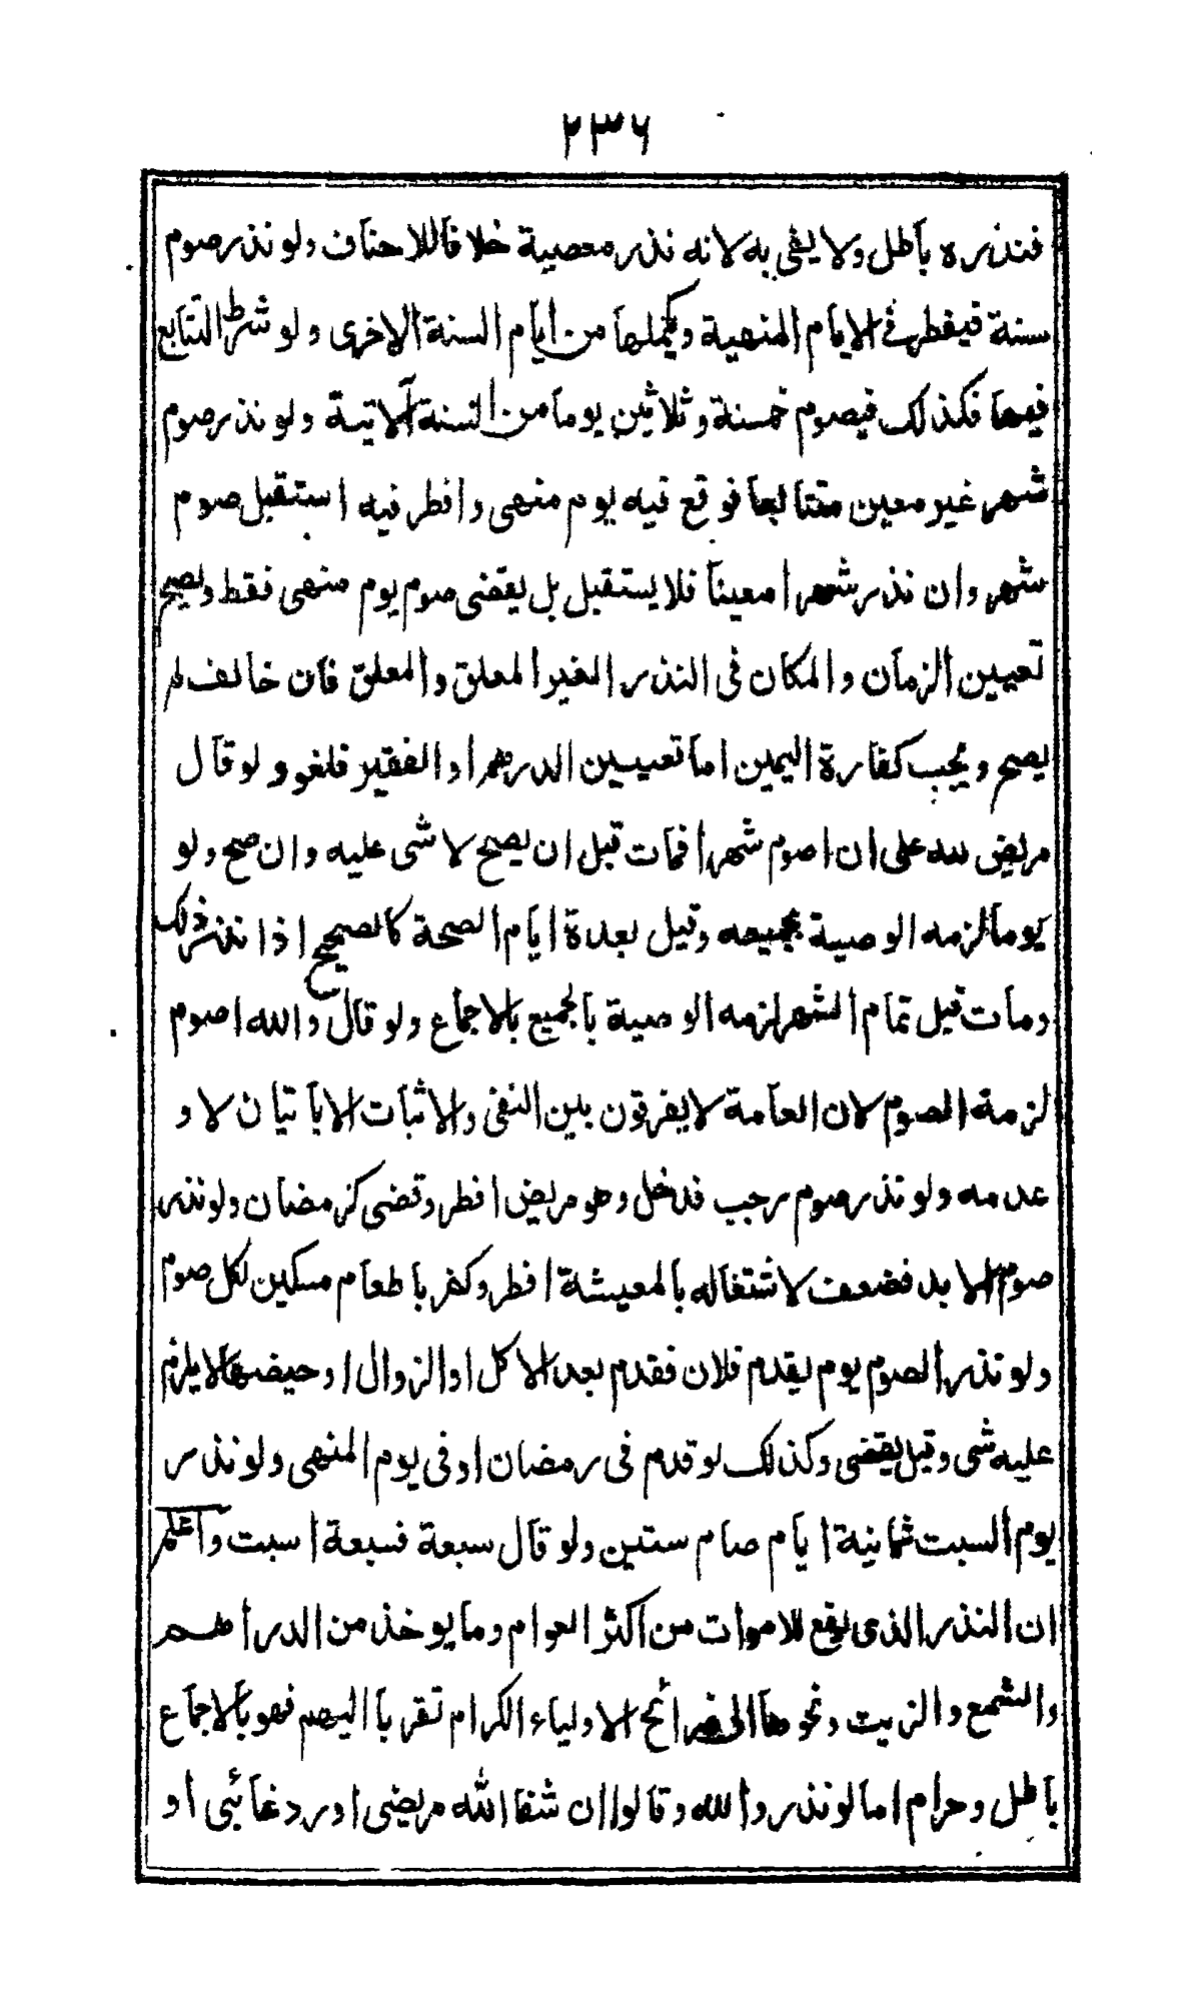 ٢٣٦
فنذره باطل ولا يفى به لانه نذر معصية خلافا للاحناف ولو نذر صوم
سنة فيفطر فى الايام المنهية ويكملها من ايام السنة الاخرى ولو شرط التتابع
فيها فكذلك فيصوم خمسة وثلاثين يوما من السنة الاتية ولو نذر صوم
شهر غير معين متتابعا فوقع فيه يوم منهى وافطر فيه استقبل صوم
شهر وان نذر شهرا معينا فلا يستقبل بل يقضى صوم يوم منهى فقط ويصح
تعيين الزمان والمكان فى النذر الغير المعلق والمعلق فان خالف لم
يصح ويجب كفارة اليمين اما تعيين الدرهم او الفقير فلغو ولو قال
مريض لله على ان اصوم شهرا فمات قبل ان يصح لا شى عليه وان صح ولو
يوما لزمه الوصية بجميعه وقيل بعدة ايام الصحة كالصحيح اذا نذر ذلك
ومات قبل تمام الشهر لزمه الوصية بالجميع بالاجماع ولو قال والله اصوم
لزمة الصوم لان العامة لا يفرقون بين النفى والاثبات الا باتيان لا و
عدمه ولو نذر صوم رجب فدخل وهو مريض افطر وقضى كرمضان ولو نذر
صوم الابد فضعف لاشتغاله بالمعيشة افطر وكفر باطعام مسكين لكل صوم
ولو نذر الصوم يوم يقدم فلان فقدم بعد الاكل او الزوال او حيضها لا يلزم
عليه شى وقيل يقضى وكذلك لو قدم فى رمضان او فى يوم المنهى ولو نذر
يوم السبت ثمانية ايام صام ستين ولو قال سبعة فسبعة اسبت واعلم
ان النذر الذى يقع للاموات من اكثر العوام وما يوخذ من الدراهم
والشمع والزيت ونحوها الى ضرائح الاولياء الكرام تقربا اليهم فهو بالاجماع
باطل وحرام اما لو نذر والله وقالوا ان شفا الله مريضى او رد غائبى او